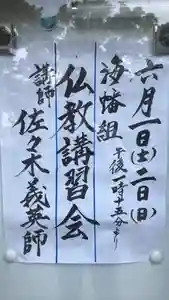 六月一日(土)二日(日)
午後一時十五分より
組
仏教講習会
講師 佐々木義英師